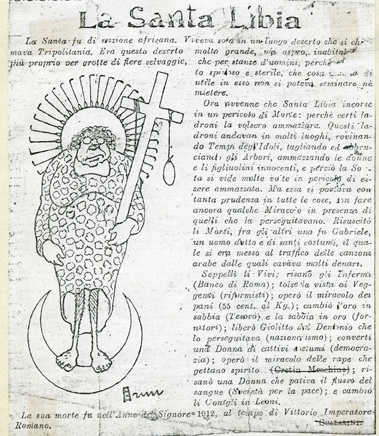 La Santa Libia
La Santa fu di nazione africana. Viveva sola in un luogo deserto che si chi-
mava Tripolitania. Era questo deserto molto grande, ma aspro, inabitabile
più proprio per grotte di fiere selvaggie, che per stanze d'uomini, perchè
to spinoso e sterile, che cosa utile in esso non si poteva seminare, nè
mietere.
Ora avvenne che Santa Libia incorse
in un pericolo di Morte: perchè certi la-
droni la volsero ammazzare. Questi la-
droni andavan in molti luoghi, rovinan-
do Tempi degl'Idoli, tagliando ed abbru-
ciando gli Arbori, ammazzando le donne
e li figliuolini innocenti, e perciò la San-
ta si vide molte volte in pericolo di es-
sere ammazzata. Ma essa si portava con
tanta prudenza in tutte le cose, con fare
ancora qualche Miracolo in presenza di
quelli che la perseguitavano. Risuscitò
li Morti, fra gli altri uno fu Gabriele,
un uomo dotto e di santi costumi, il qua-
le si era messo al traffico delle canzoni
arabe dalle quali cavava molti denari.
Seppellì li Vivi; risanò gli Infermi
(Banco di Roma); tolse la vista ai Veg-
genti (riformisti); operò il miracolo dei
pani (55 cent. al Kg.); cambiò l'oro in
sabbia (Tesoro) e la sabbia in oro (for-
nitori); liberò Giolitto dal Demonio che
lo perseguitava (nazionalismo); convertì
una Donna di cattivi costumi (democra-
zia); operò il miracolo delle rape che
gettano spirito (Cretin Meschino); ri-
sanò una Donna che pativa il flusso del
sangue (Società per la pace); e cambiò
li Coniglì in Leoni.
La sua morte fu nell'Anno del Signore 1912, al tempo di Vittorio Imperatore
Romano.